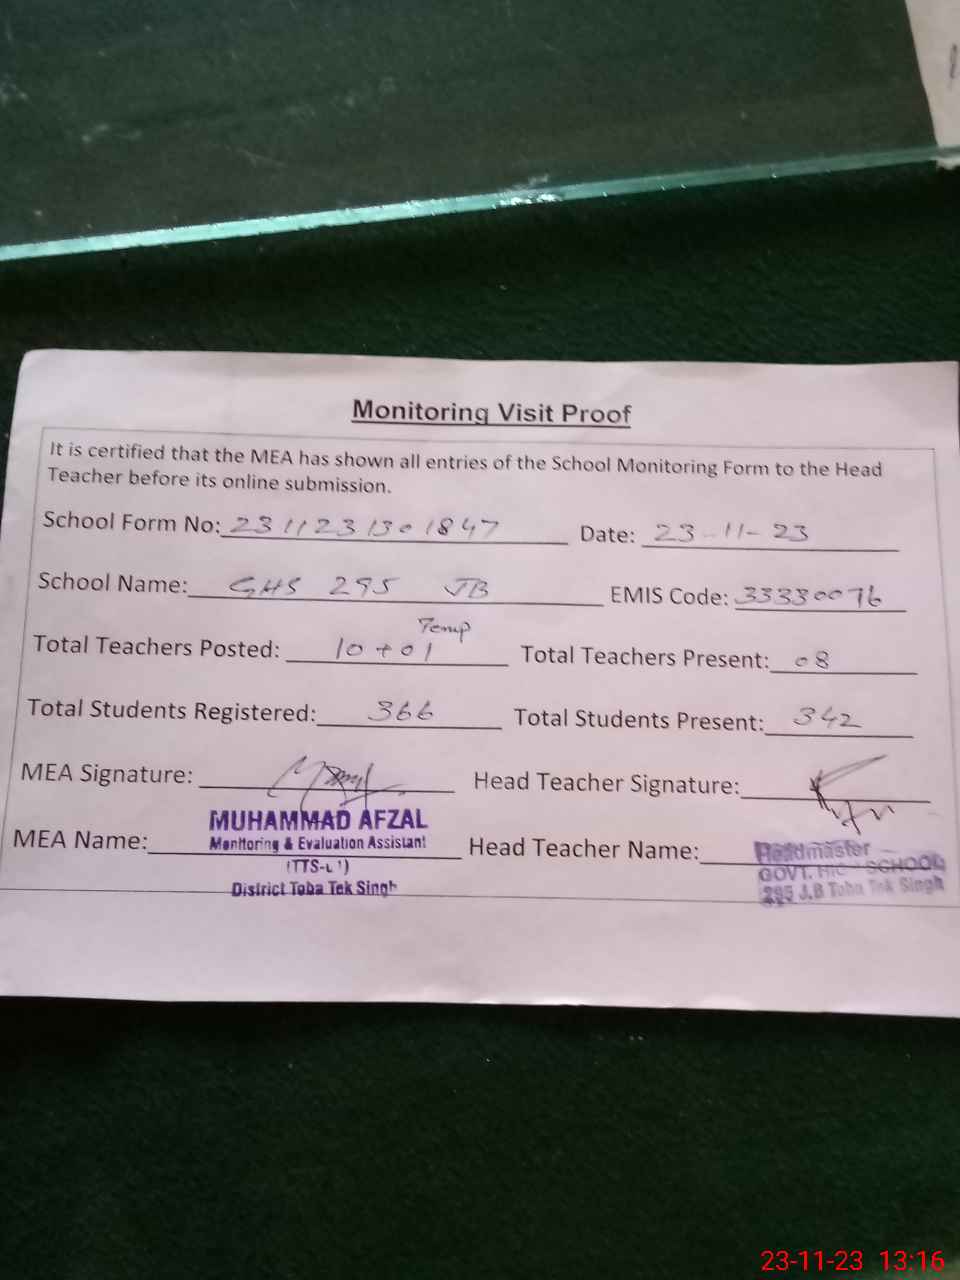 Monitoring Visit Proof
It is certified that the MEA has shown all entries of the School Monitoring Form to the Head
Teacher before its online submission.
School Form No: 2311231301847 Date: 23-11-23
School Name: GHS 295 JB EMIS Code: 33330076
Temp
Total Teachers Posted: 10+01 Total Teachers Present: 08
Total Students Registered: 366 Total Students Present: 342
MEA Signature: Head Teacher Signature:
MEA Name: Head Teacher Name:
MUHAMMAD AFZAL
Monitoring & Evaluation Assistant
District Toba Tek Singh
Headmaster
GOVT. SCHOOL
295 J.B Toba Tek Singh
23-11-23 13:16